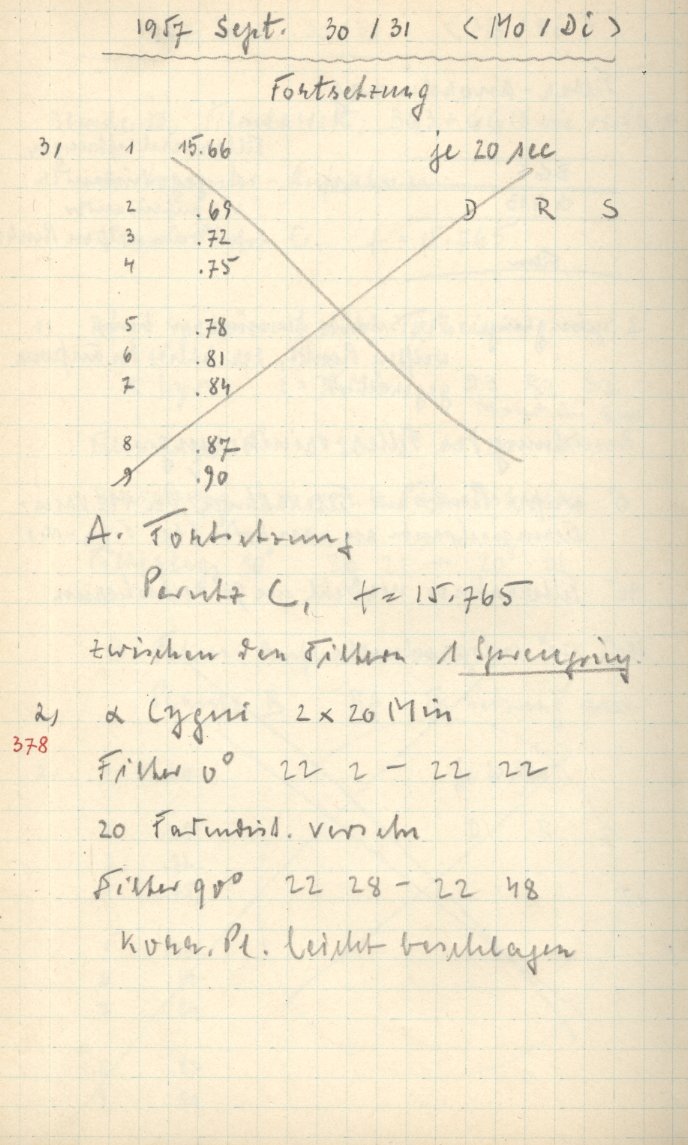 1957 Sept. 30 / 31 (Mo / Di)
Fortsetzung
3, 1 15.66 je 20 sec
2 .69 D R S
3 .72
4 .75
5 .78
6 .81
7 .84
8 .87
9 .90
A. Fortsetzung
Perutz C, f = 15.765
zwischen den Filtern 1 Sprengring.
2, α Cygni 2 x 20 Min
378
Filter 0° 22 2 - 22 22
20 Fadendist. versetzn
Filter 90° 22 28 - 22 48
Korr. Pl. leicht beschlagen